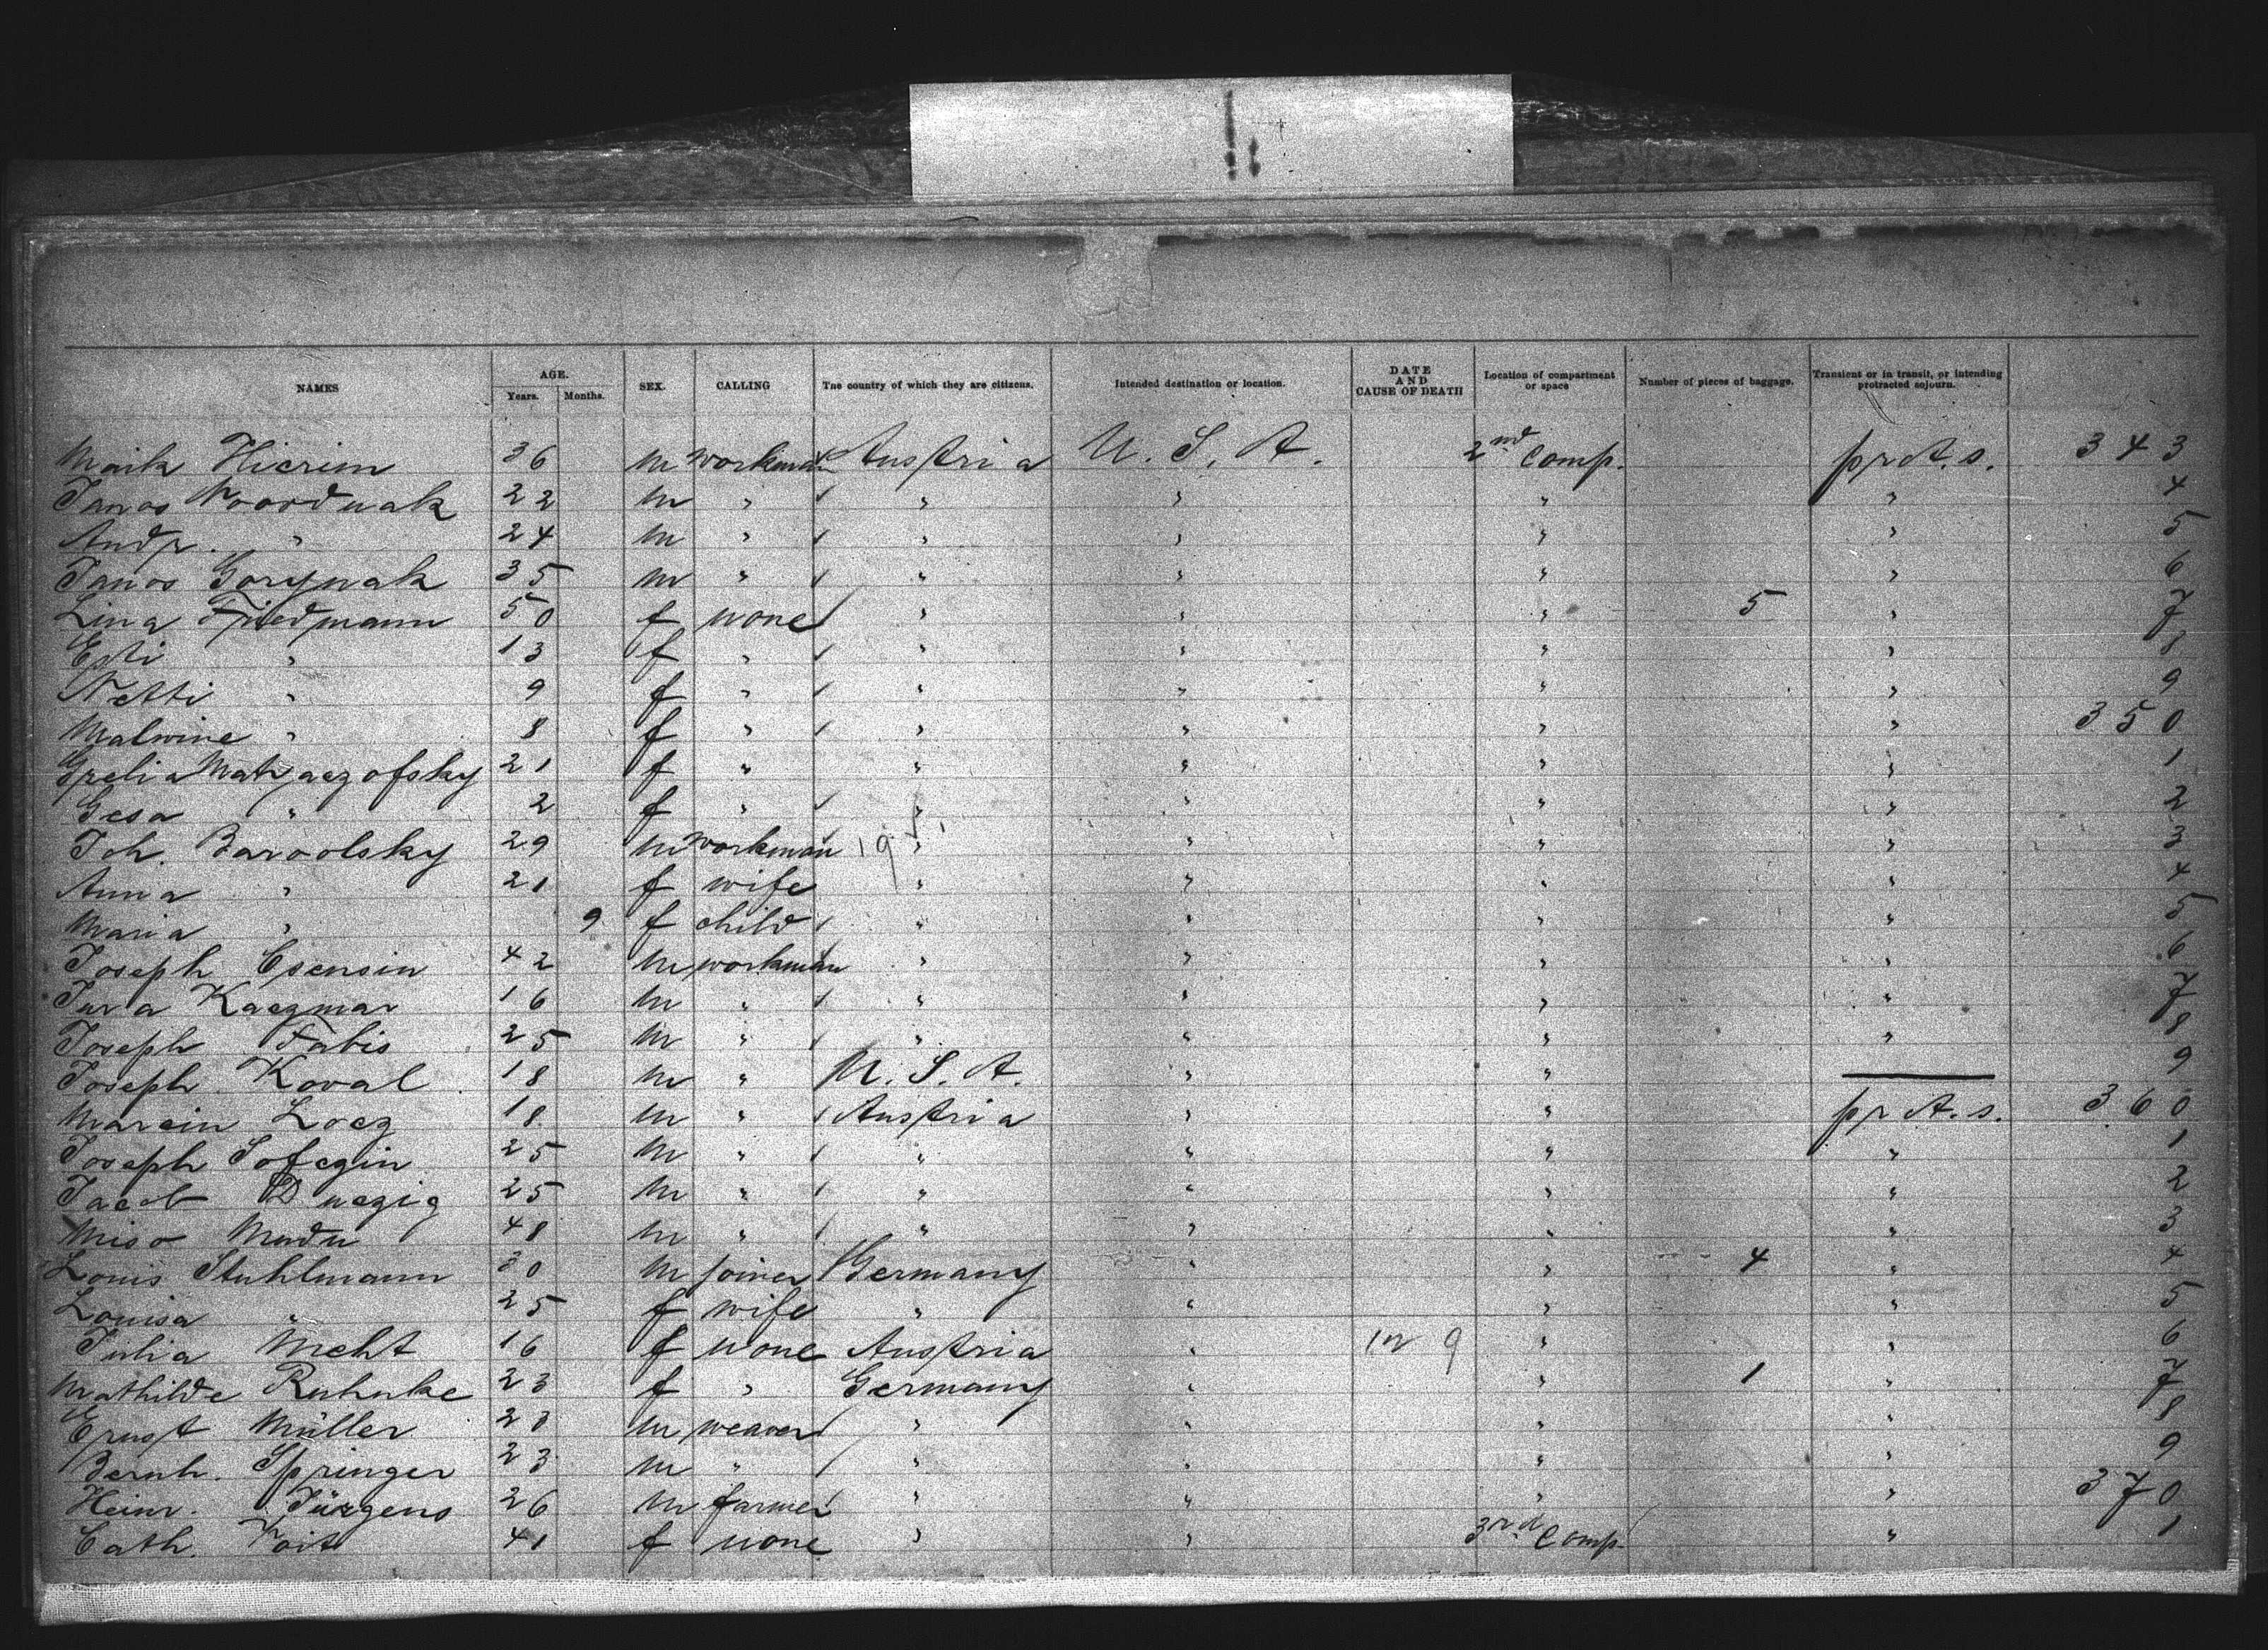 NAMES AGE. Years. Months. SEX. CALLING The country of which they are citizens. Intended destination or location. DATE AND CAUSE OF DEATH Location of compartment or space Number of pieces of baggage. Transient or in transit, or intending protracted sojourn.
Maik Hierim 36 m workman Austria U. S. A. 2nd Comp. pr A. s. 343
Janos Noordnak 22 m " " " " " 4
Andr. " 24 m " " " " " 5
Janos Gorynak 35 m " " " " " 6
Lina Friedmann 50 f none " " " 5 " 7
Esti " 13 f " " " " " 8
Netti " 9 f " " " " " 9
Malwine " 8 f " " " " " 350
Matyaczofsky 21 f " " " " " 1
Gesa " 2 f " " " " " 2
Joh. Baroolsky 29 m workman 19 " " " " 3
Anna " 21 f wife " " " " 4
Maria " 9 f child " " " " 5
Joseph Csensin 42 m workman " " " " 6
Jura Kaczmar 16 m " " " " " 7
Joseph Fabis 25 m " " " " " 8
Joseph Koval 18 m " U. S. A. " " — 9
Marcin Locz 18 m " Austria " " pr A. s. 360
Joseph Sofczin 25 m " " " " " 1
Jacob Duczig 25 m " " " " " 2
Miso Madu 48 m " " " " " 3
Louis Stuhlmann 30 m joiner Germany " " 4 " 4
Louisa " 25 f wife " " " " 5
Julia Mcht 16 f none Austria " 9 " " 6
Mathilde Ruhnke 23 f " Germany " " 1 " 7
Ernst Müller 28 m weaver " " " " 8
Bernh. Springer 23 m " " " " " 9
Heinr. Jürgens 26 m farmer " " " " 370
Cath. Voit 41 f none " " 3rd Comp. " 1